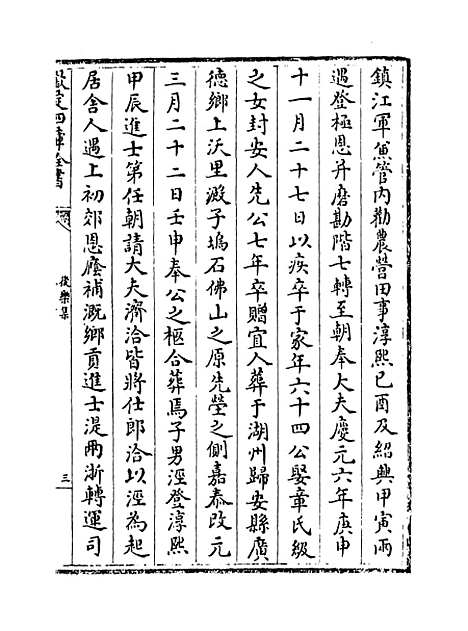 鎮江軍兼管內勸農營田事淳熙己酉及紹興甲寅兩
遇登極恩并磨勘階七轉至朝奉大夫慶元六年庚申
十一月二十七日以疾卒于家年六十四公娶章氏級
之女封安人先公七年卒贈宜人葬于湖州歸安縣廣
德鄉上沃里澱子塢石佛山之原先塋之側嘉泰改元
三月二十二日壬申奉公之柩合葬焉子男涇登淳熙
甲辰進士第任朝請大夫濟洽皆將仕郎洽以涇為起
居舍人遇上初郊恩廕補溉鄉貢進士湜兩浙轉運司
欽定四庫全書
後樂集
三